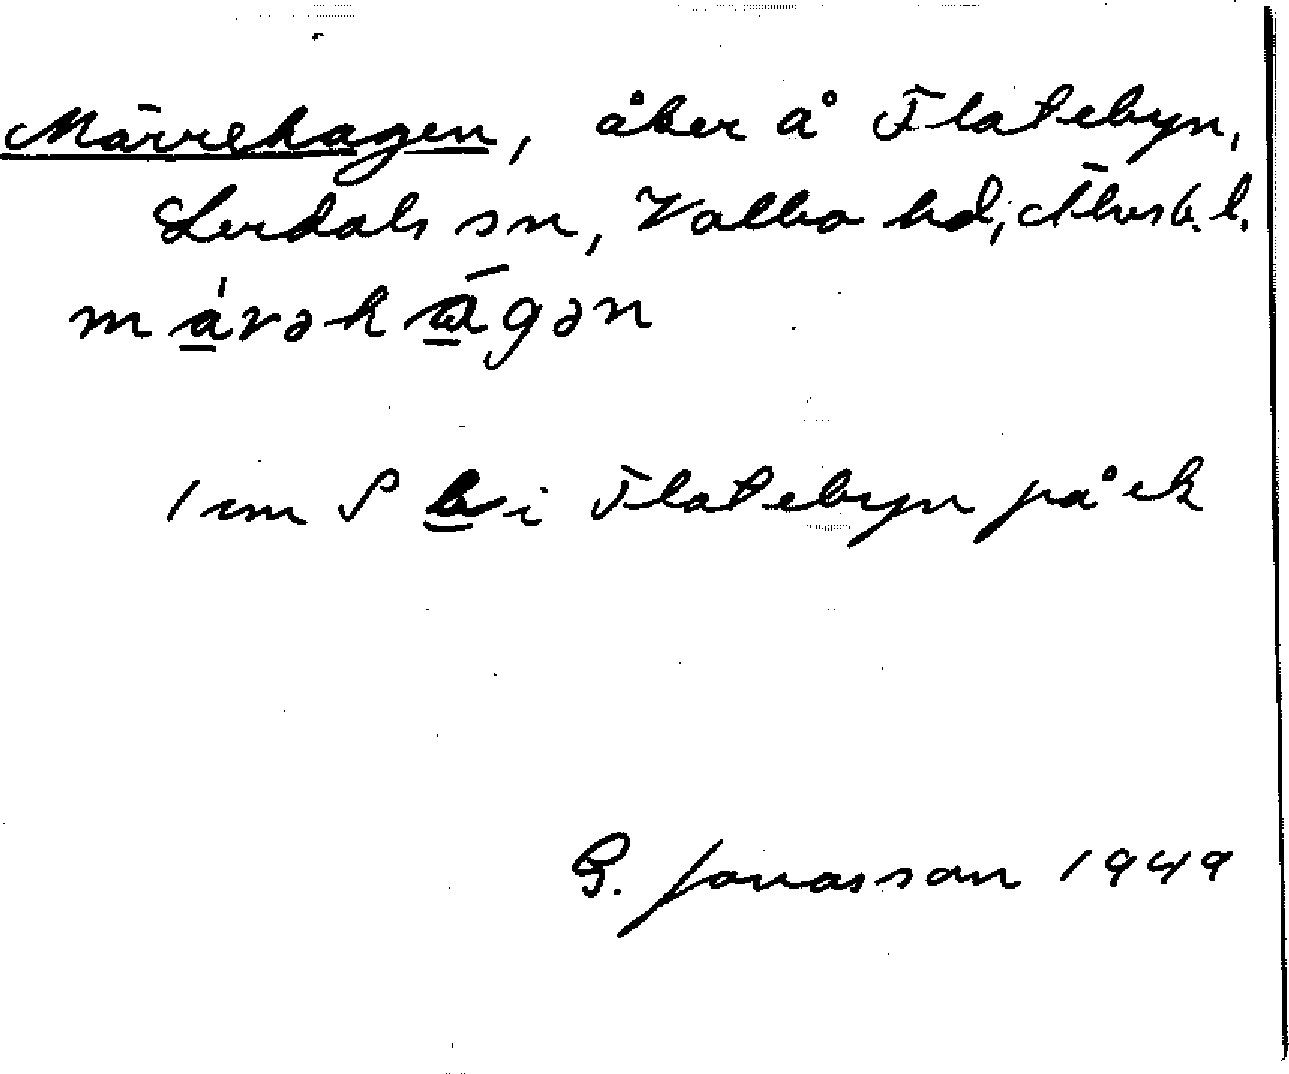 Märrehagen, åker å Flatebyn,
Lerdals sn, Valbo hd, Älvsb. l.
må̱rəha̱gən
1 cm S b i Flatebyn på ek
G. Jonasson 1949